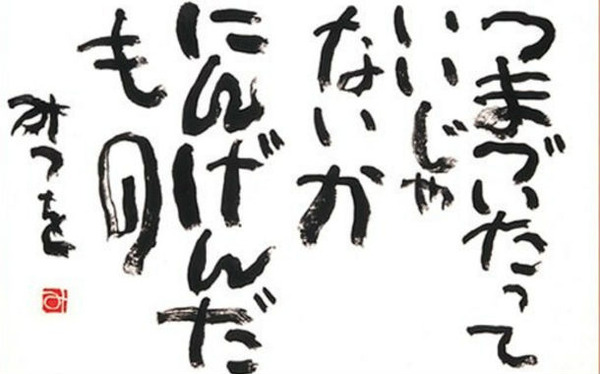 つまづいたって
いいじゃ
ないか
にんげんだ
もの
みつを